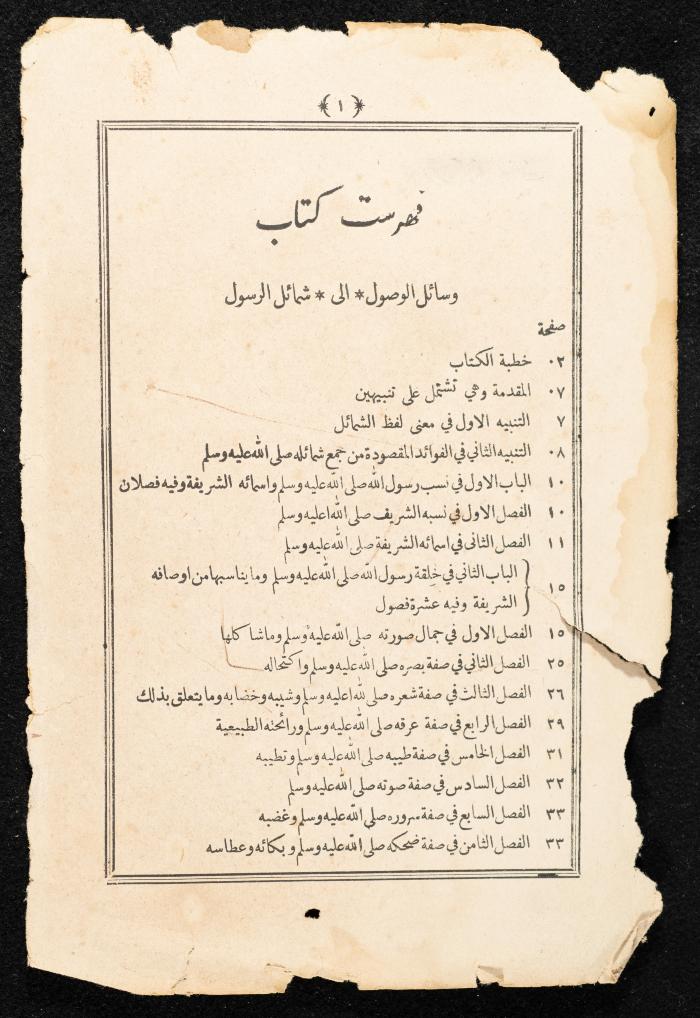 ﴿ ١ ﴾
فهرست كتاب
وسائل الوصول * الى * شمائل الرسول
صفحة
٠٢ خطبة الكتاب
٠٧ المقدمة وهي تشتمل على تنبيهين
٧ التنبيه الاول في معنى لفظ الشمائل
٠٨ التنبيه الثاني في الفوائد المقصودة من جمع شمائله صلى الله عليه وسلم
١٠ الباب الاول في نسب رسول الله صلى الله عليه وسلم واسمائه الشريفة وفيه فصلان
١٠ الفصل الاول في نسبه الشريف صلى الله عليه وسلم
١١ الفصل الثاني في اسمائه الشريفة صلى الله عليه وسلم
١٥ الباب الثاني في خلقة رسول الله صلى الله عليه وسلم وما يناسبها من اوصافه
الشريفة وفيه عشرة فصول
١٥ الفصل الاول في جمال صورته صلى الله عليه وسلم وما شاكلها
٢٥ الفصل الثاني في صفة بصره صلى الله عليه وسلم واكتحاله
٢٦ الفصل الثالث في صفة شعره صلى الله عليه وسلم وشيبه وخضابه وما يتعلق بذلك
٢٩ الفصل الرابع في صفة عرقه صلى الله عليه وسلم ورائحته الطبيعية
٣١ الفصل الخامس في صفة طيبه صلى الله عليه وسلم وتطيبه
٣٢ الفصل السادس في صفة صوته صلى الله عليه وسلم
٣٣ الفصل السابع في صفة سروره صلى الله عليه وسلم وغضبه
٣٣ الفصل الثامن في صفة ضحكه صلى الله عليه وسلم وبكائه وعطاسه